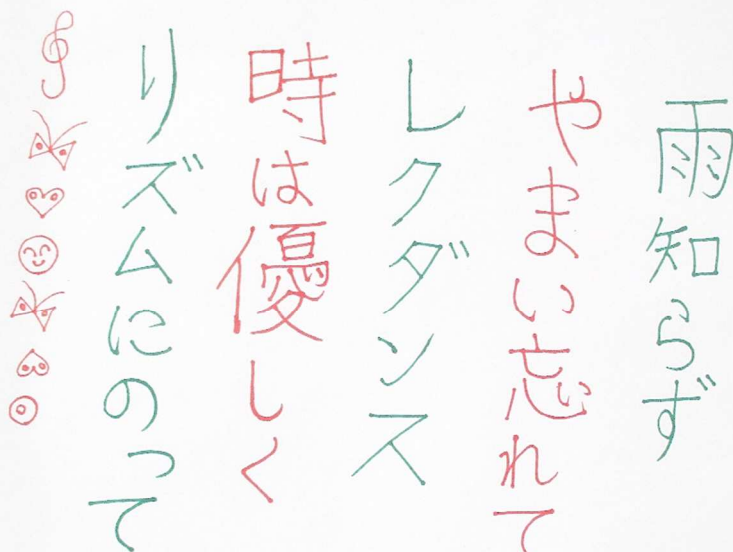 雨知らず
やまい忘れて
レクダンス
時は優しく
リズムにのって